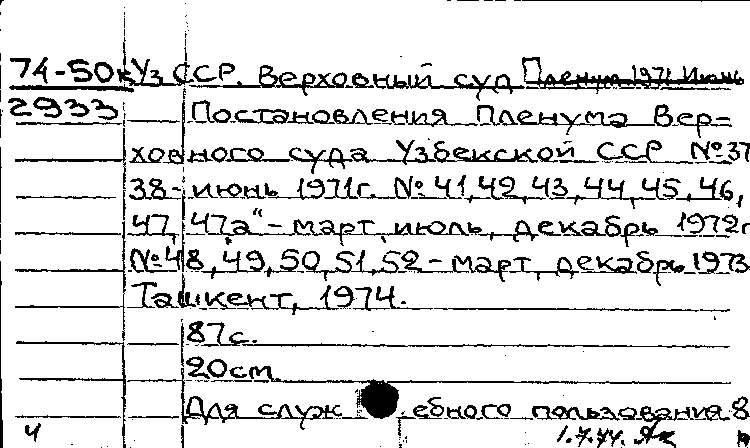 74-50к Уз ССР. Верховный суд Пленум 1971 Июнь
2933 Постановления Пленума Вер-
ховного суда Узбекской ССР №37
38- июнь 1971г. №41,42,43,44,45,46,
47, 47„а“ - март, июль, декабрь 1972г
№48,49,50,51,52 - март, декабрь 1973
Ташкент, 1974.
87с.
20см.
Для служебного пользования
ч